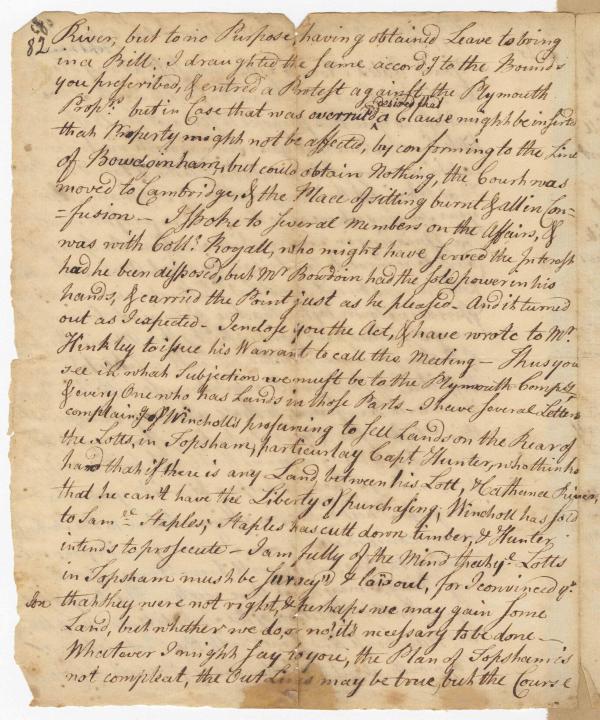 82
River, but to no Purpose, having obtained Leave to bring
in a Bill; I draughted the same accordg to the Bounds
you prescribed, & entred a Protest against the Plymouth
Proprs. but in Case that was overruld desired that
a Clause might be inserted
that Property might not be affected, by conforming to the Line
of Bowdoinham, but could obtain Nothing, the Court was
moved to Cambridge, & the Place of sitting burnt & all in Con-
=fusion. — I spoke to several Members on the Affairs, &
was with Coll: Royall, who might have served the Interest
had he been disposed, but Mr Bowdoin had the sole power in his
hands, & carried the Point just as he pleased — And it turned
out as I expected — I enclose you the Act, & have wrote to Mr.
Hinkley to issue his Warrant to call this Meeting — Thus you
see in what Subjection we must be to the Plymouth Compy
& every One who has Lands in those Parts — I have several Letters
complaing of Wincholl's presuming to sell Lands on the Rear of
the Lotts, in Topsham, particurlay Capt. Hunter, who thinks
hard that if there is any Land, between his Lott, & Cathance River,
that he can't have the Liberty of purchasing; Wincholl has sold
to Saml. Staples; Staples has cutt down timber, & Hunter
intends to prosecute — I am fully of the Mind that ye Lotts
in Topsham must be Surveyd & laid out, for I convinced ym
that they were not right, & perhaps we may gain some
Land, but whether we do, or no, it's necessary to be done —
Whatever I might say to you, the Plan of Topsham is
not compleat, the Out Lines may be true, but the Course